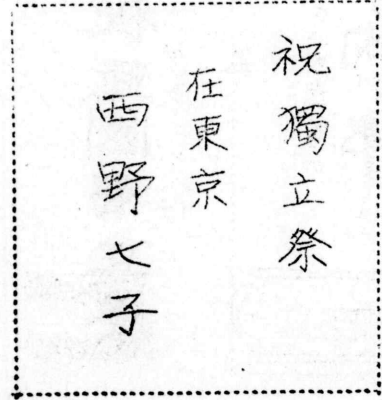 祝獨立祭
在東京
西野七子